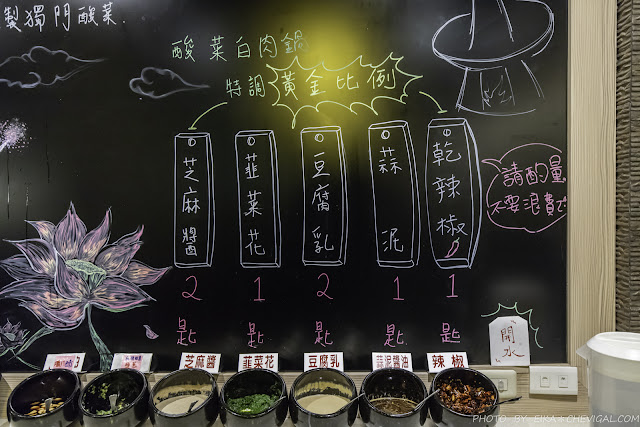 製獨門酸菜
酸菜白肉鍋
特調黃金比例
芝麻醬
2
匙
韭菜花
1
匙
豆腐乳
2
匙
蒜泥
1
匙
乾辣椒
1
匙
請酌量
不要浪費
開水
芝麻醬
韭菜花
豆腐乳
蒜泥醬油
辣椒
PHOTO · BY · EIKA×CHEVIGAL.COM